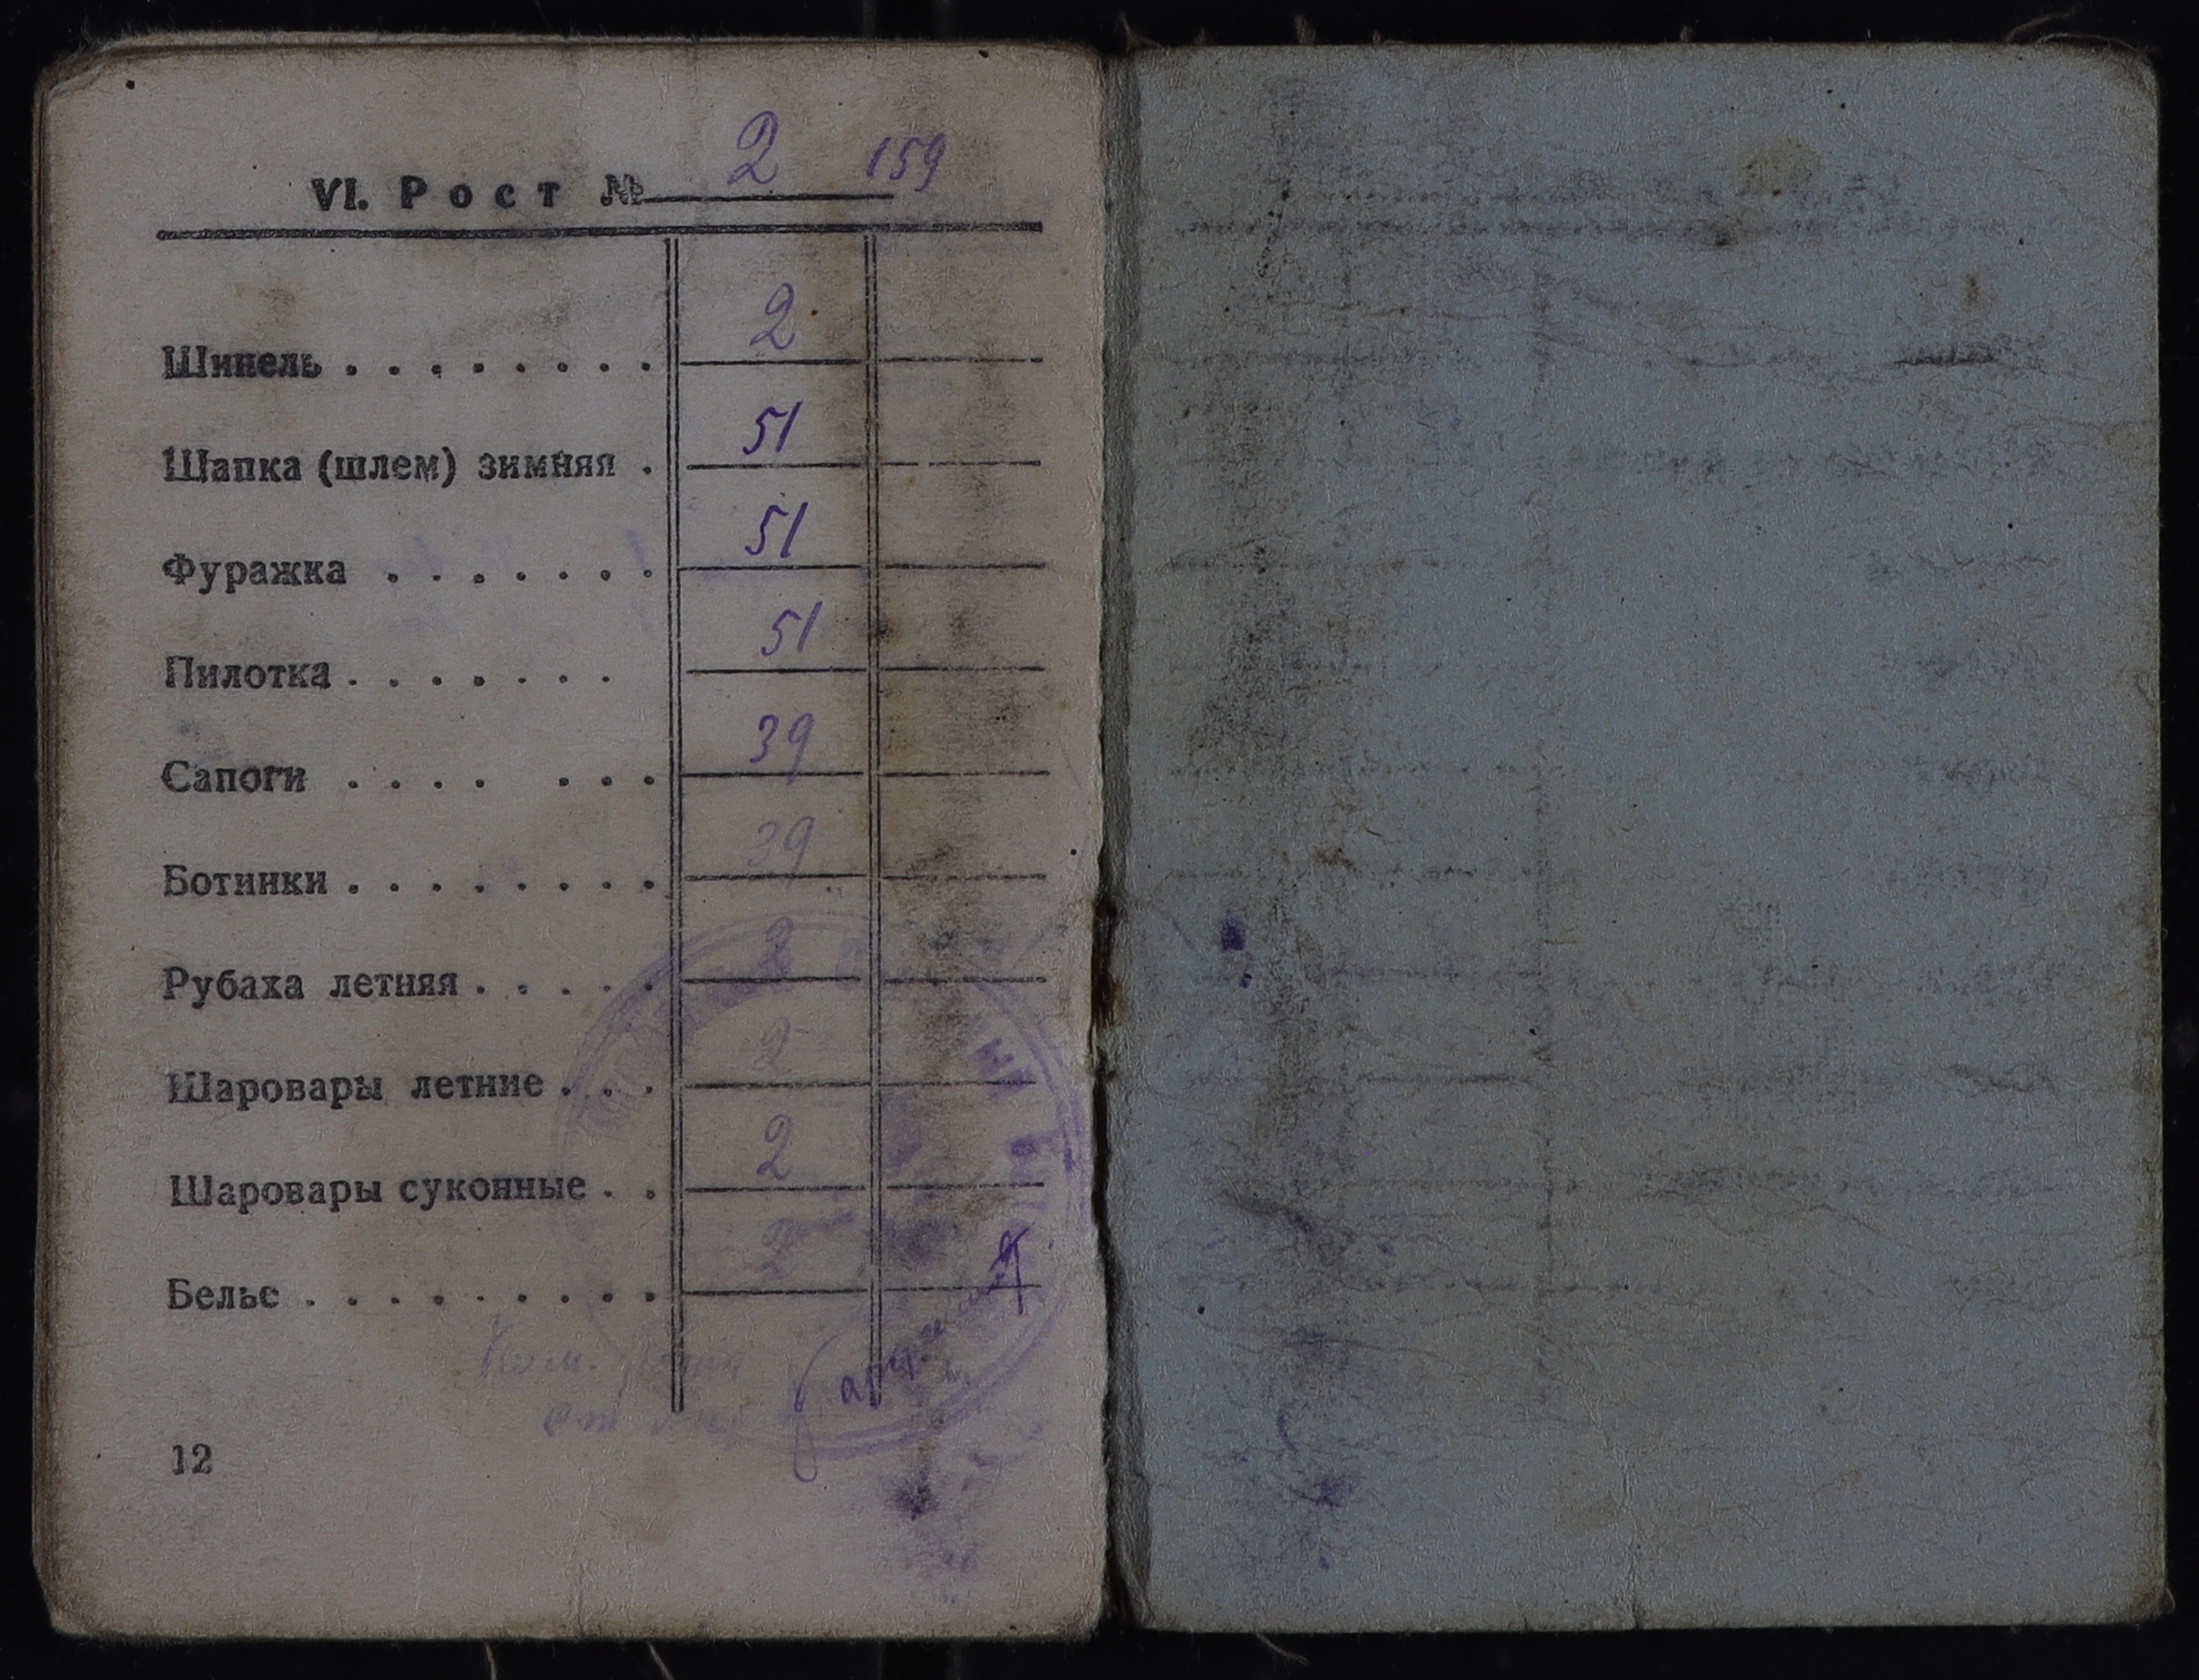 VI. Рост № 2 159
Шинель . . . . . . . . 2
Шапка (шлем) зимняя . 51
Фуражка . . . . . . . 51
Пилотка . . . . . . . 51
Сапоги . . . . . . . 39
Ботинки . . . . . . . . 39
Рубаха летняя . . . . . 2
Шаровары летние . . . 2
Шаровары суконные . . 2
Белье . . . . . . . . . 2
12